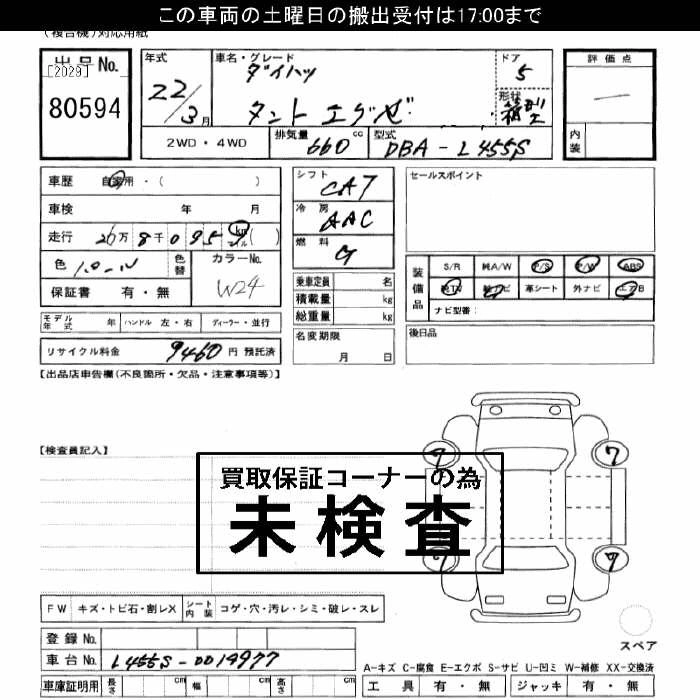 この車両の土曜日の搬出受付は17:00まで
(複合機)対応用紙
出品No.
[2029]
80594
年式
22/3月
車名・グレード
ダイハツ
タント エグゼ
ドア
5
形状
評価点
内装
2WD・4WD
排気量 660 cc
型式 DBA-L455S
車歴 自家用・( )
車検 年 月
走行 万 8千 0 9 5 km マイル ( )
色 パール
色替
カラーNo.
W24
保証書 有・無
モデル年式 年 ハンドル 左・右 ディーラー・並行
リサイクル料金 9460 円 預託済
シフト CAT
冷房 AAC
燃料 G
乗車定員 名
積載量 kg
総重量 kg
名変期限
月 日
セールスポイント
装備品
S/R 純A/W P/S P/W ABS
純TV 純ナビ 革シート 外ナビ エアB
ナビ型番:
後日品
【出品店車告欄(不良箇所・欠品・注意事項等)】
【検査員記入】
買取保証コーナーの為
未検査
7
7
7
7
FW キズ・トビ石・割レX シート内装 コゲ・穴・汚レ・シミ・破レ・スレ
登録No.
車台No. L455S-0014977
車庫証明用 長さ cm 幅 cm 高さ cm
スペア
A-キズ C-腐食 E-エクボ S-サビ U-凹ミ W-補修 XX-交換済
工具 有・無 ジャッキ 有・無